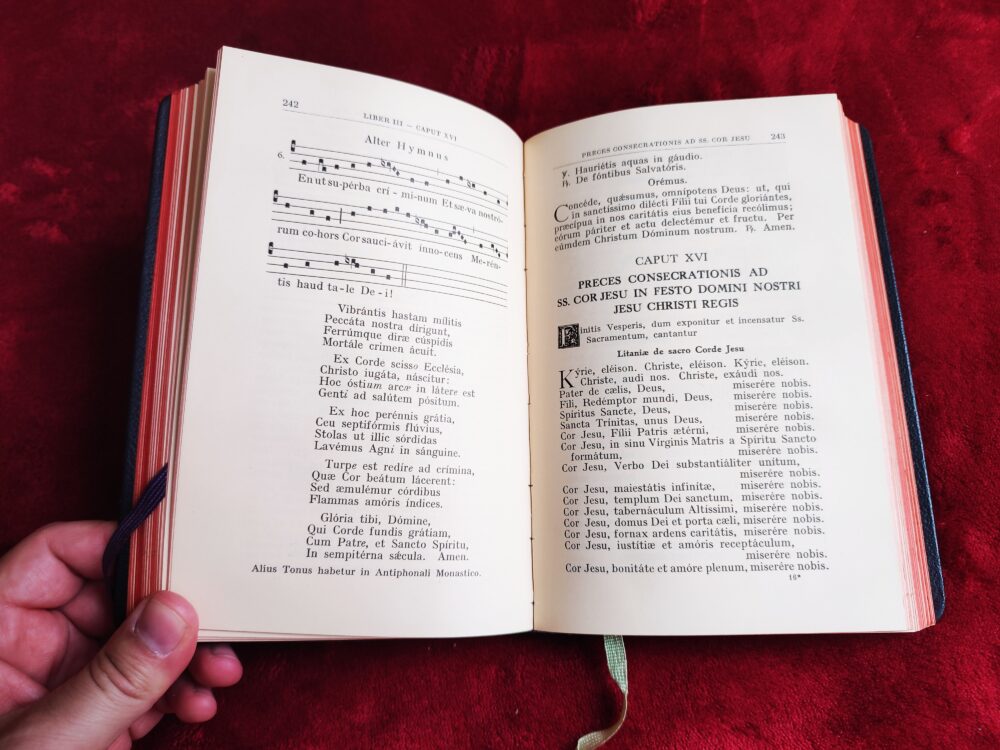 242
LIBER III — CAPUT XVI
Alter Hymnus
6.
En ut su-pérba crí - mi-num Et sæ-va nostró-
rum co-hors Cor sauci-ávit inno-cens Me-rén-
tis haud ta-le De-i!
Vibrántis hastam mílitis
Peccáta nostra dírigunt,
Ferrúmque diræ cúspidis
Mortále crimen ácuit.
Ex Corde scisso Ecclésia,
Christo iugáta, náscitur:
Hoc óstium arcæ in látere est
Genti ad salútem pósitum.
Ex hoc perénnis grátia,
Ceu septifórmis flúvius,
Stolas ut illic sórdidas
Lavémus Agni in sánguine.
Turpe est redíre ad crímina,
Quæ Cor beátum lácerent:
Sed æmulémur córdibus
Flammas amóris índices.
Glória tibi, Dómine,
Qui Corde fundis grátiam,
Cum Patre, et Sancto Spíritu,
In sempitérna sǽcula. Amen.
Alius Tonus habetur in Antiphonali Monastico.
PRECES CONSECRATIONIS AD SS. COR JESU 243
℣. Hauriétis aquas in gáudio.
℟. De fóntibus Salvatóris.
Orémus.
Concéde, quǽsumus, omnípotens Deus: ut, qui
in sanctíssimo dilécti Fílii tui Corde gloriántes,
præcípua in nos caritátis eius benefícia recólimus;
eórum páriter et actu delectémur et fructu. Per
eúmdem Christum Dóminum nostrum. ℟. Amen.
CAPUT XVI
PRECES CONSECRATIONIS AD
SS. COR JESU IN FESTO DOMINI NOSTRI
JESU CHRISTI REGIS
Finitis Vesperis, dum exponitur et incensatur Ss.
Sacramentum, cantantur
Litaniæ de sacro Corde Jesu
Kýrie, eléison. Christe, eléison. Kýrie, eléison.
Christe, audi nos. Christe, exáudi nos.
Pater de cælis, Deus, miserére nobis.
Fili, Redémptor mundi, Deus, miserére nobis.
Spíritus Sancte, Deus, miserére nobis.
Sancta Trínitas, unus Deus, miserére nobis.
Cor Jesu, Fílii Patris ætérni, miserére nobis.
Cor Jesu, in sinu Vírginis Matris a Spíritu Sancto
formátum, miserére nobis.
Cor Jesu, Verbo Dei substantiáliter unitum,
miserére nobis.
Cor Jesu, maiestátis infinítæ, miserére nobis.
Cor Jesu, templum Dei sanctum, miserére nobis.
Cor Jesu, tabernáculum Altíssimi, miserére nobis.
Cor Jesu, domus Dei et porta cæli, miserére nobis.
Cor Jesu, fornax ardens caritátis, miserére nobis.
Cor Jesu, iustítiæ et amóris receptáculum,
miserére nobis.
Cor Jesu, bonitáte et amóre plenum, miserére nobis.
16*